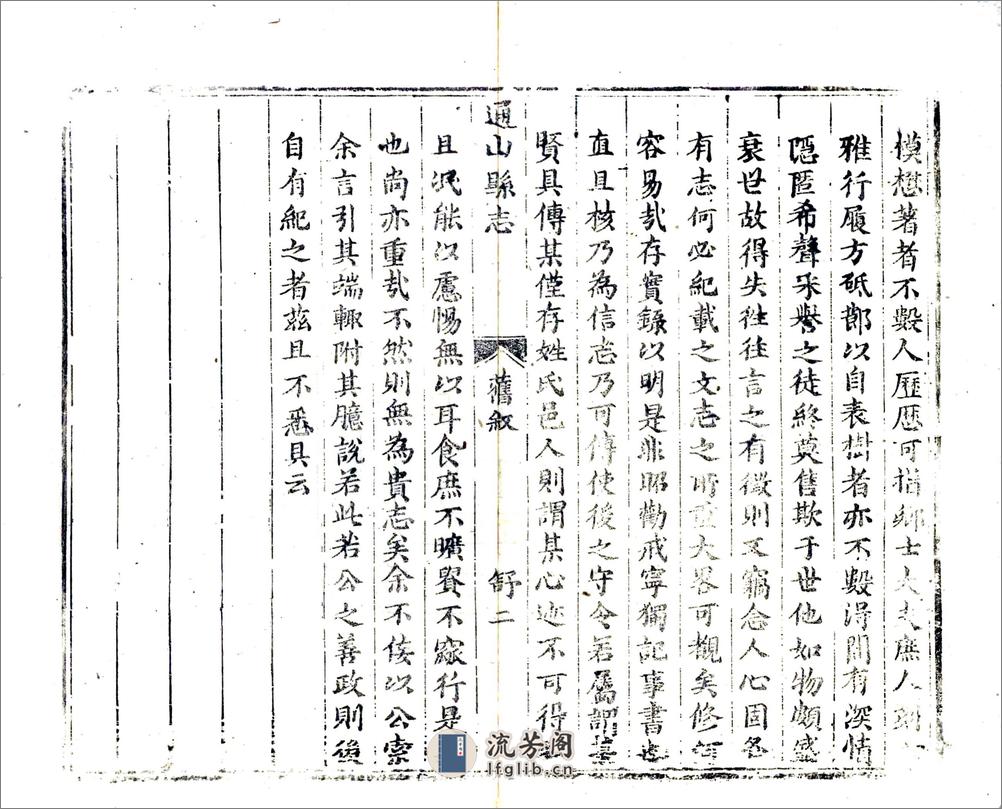 模懋著者不數人歷歷可指鄉士大夫庶人
雅行履方砥鄙以自表樹者亦不數得間有深情
隱匿希聲采譽之徒終莫售欺于世他如物頗盛
衰世故得失徃徃言之有徵則又竊念人心固各
有志何必紀載之文志之所重大畧可觀矣修
容易㢤存實錄以明是非昭勸戒寧獨記事書也
直且核乃為信志乃可傳使後之守令若屬謂某
賢具傳某僅存姓氏邑人則謂某心迹不可得
通山縣志
舊叙
舒二
且泯能以慮惕無以耳食庶不曠賢不寂行是
也尚亦重㢤不然則無為貴志矣余不佞以公索
余言引其端輙附其臆說若此若公之善政則後
自有紀之者茲且不悉具云
流芳阁
lfglib.cn